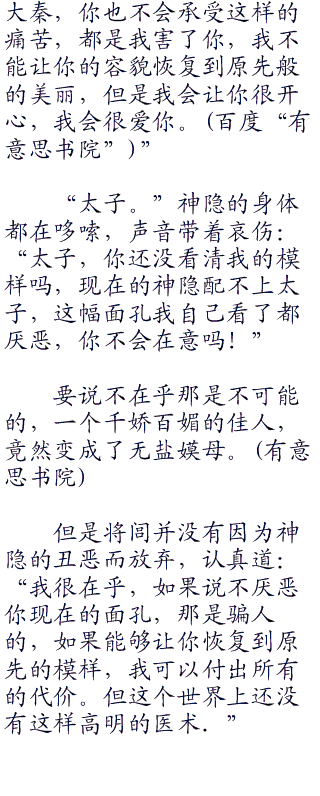 大秦，你也不会承受这样的
痛苦，都是我害了你，我不
能让你的容貌恢复到原先般
的美丽，但是我会让你很开
心，我会很爱你。(百度“有
意思书院”)”
“太子。”神隐的身体
都在哆嗦，声音带着哀伤：
“太子，你还没看清我的模
样吗，现在的神隐配不上太
子，这幅面孔我自己看了都
厌恶，你不会在意吗！”
要说不在乎那是不可能
的，一个千娇百媚的佳人，
竟然变成了无盐嫫母。(有意
思书院)
但是将闾并没有因为神
隐的丑恶而放弃，认真道：
“我很在乎，如果说不厌恶
你现在的面孔，那是骗人
的，如果能够让你恢复到原
先的模样，我可以付出所有
的代价。但这个世界上还没
有这样高明的医术．”